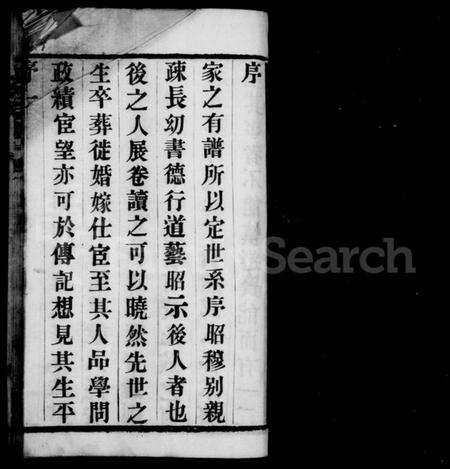 序
家之有譜所以定世系序昭穆別親
疎長幼書德行道藝昭示後人者也
後之人展卷讀之可以曉然先世之
生卒葬徙婚嫁仕宦至其人品學問
政績宦望亦可於傳記想見其生平
序
一
Search